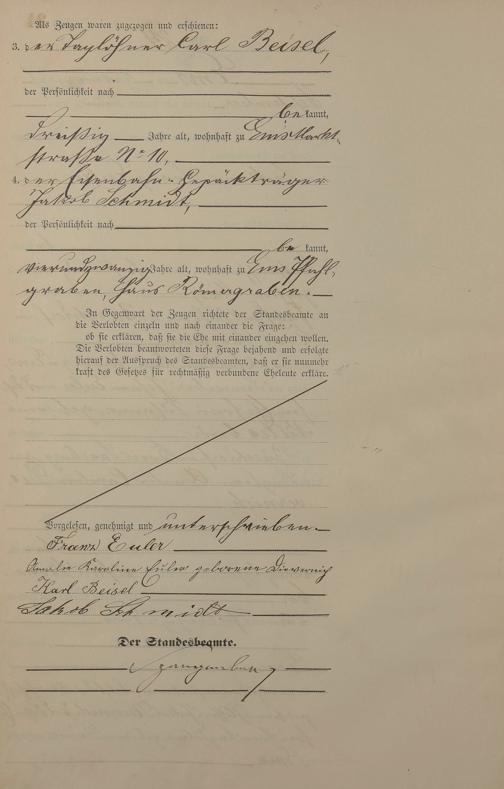 Als Zeugen waren zugezogen und erschienen:
3. der Taglöhner Carl Beisel,
der Persönlichkeit nach
bekannt,
dreißig Jahre alt, wohnhaft zu Ems Markt-
straße No 10,
4. der Eisenbahn-Gepäckträger
Jakob Schmidt,
der Persönlichkeit nach
bekannt,
vierundzwanzig Jahre alt, wohnhaft zu Ems Pfahl-
graben, Haus Römergraben.
In Gegenwart der Zeugen richtete der Standesbeamte an
die Verlobten einzeln und nach einander die Frage:
ob sie erklären, daß sie die Ehe mit einander eingehen wollen.
Die Verlobten beantworteten diese Frage bejahend und erfolgte
hierauf der Ausspruch des Standesbeamten, daß er sie nunmehr
kraft des Gesetzes für rechtmäßig verbundene Eheleute erkläre.
Vorgelesen, genehmigt und unterschrieben.
Franz Euler
Amalie Karoline Euler geborene
Karl Beisel
Jakob Schmidt
Der Standesbeamte.